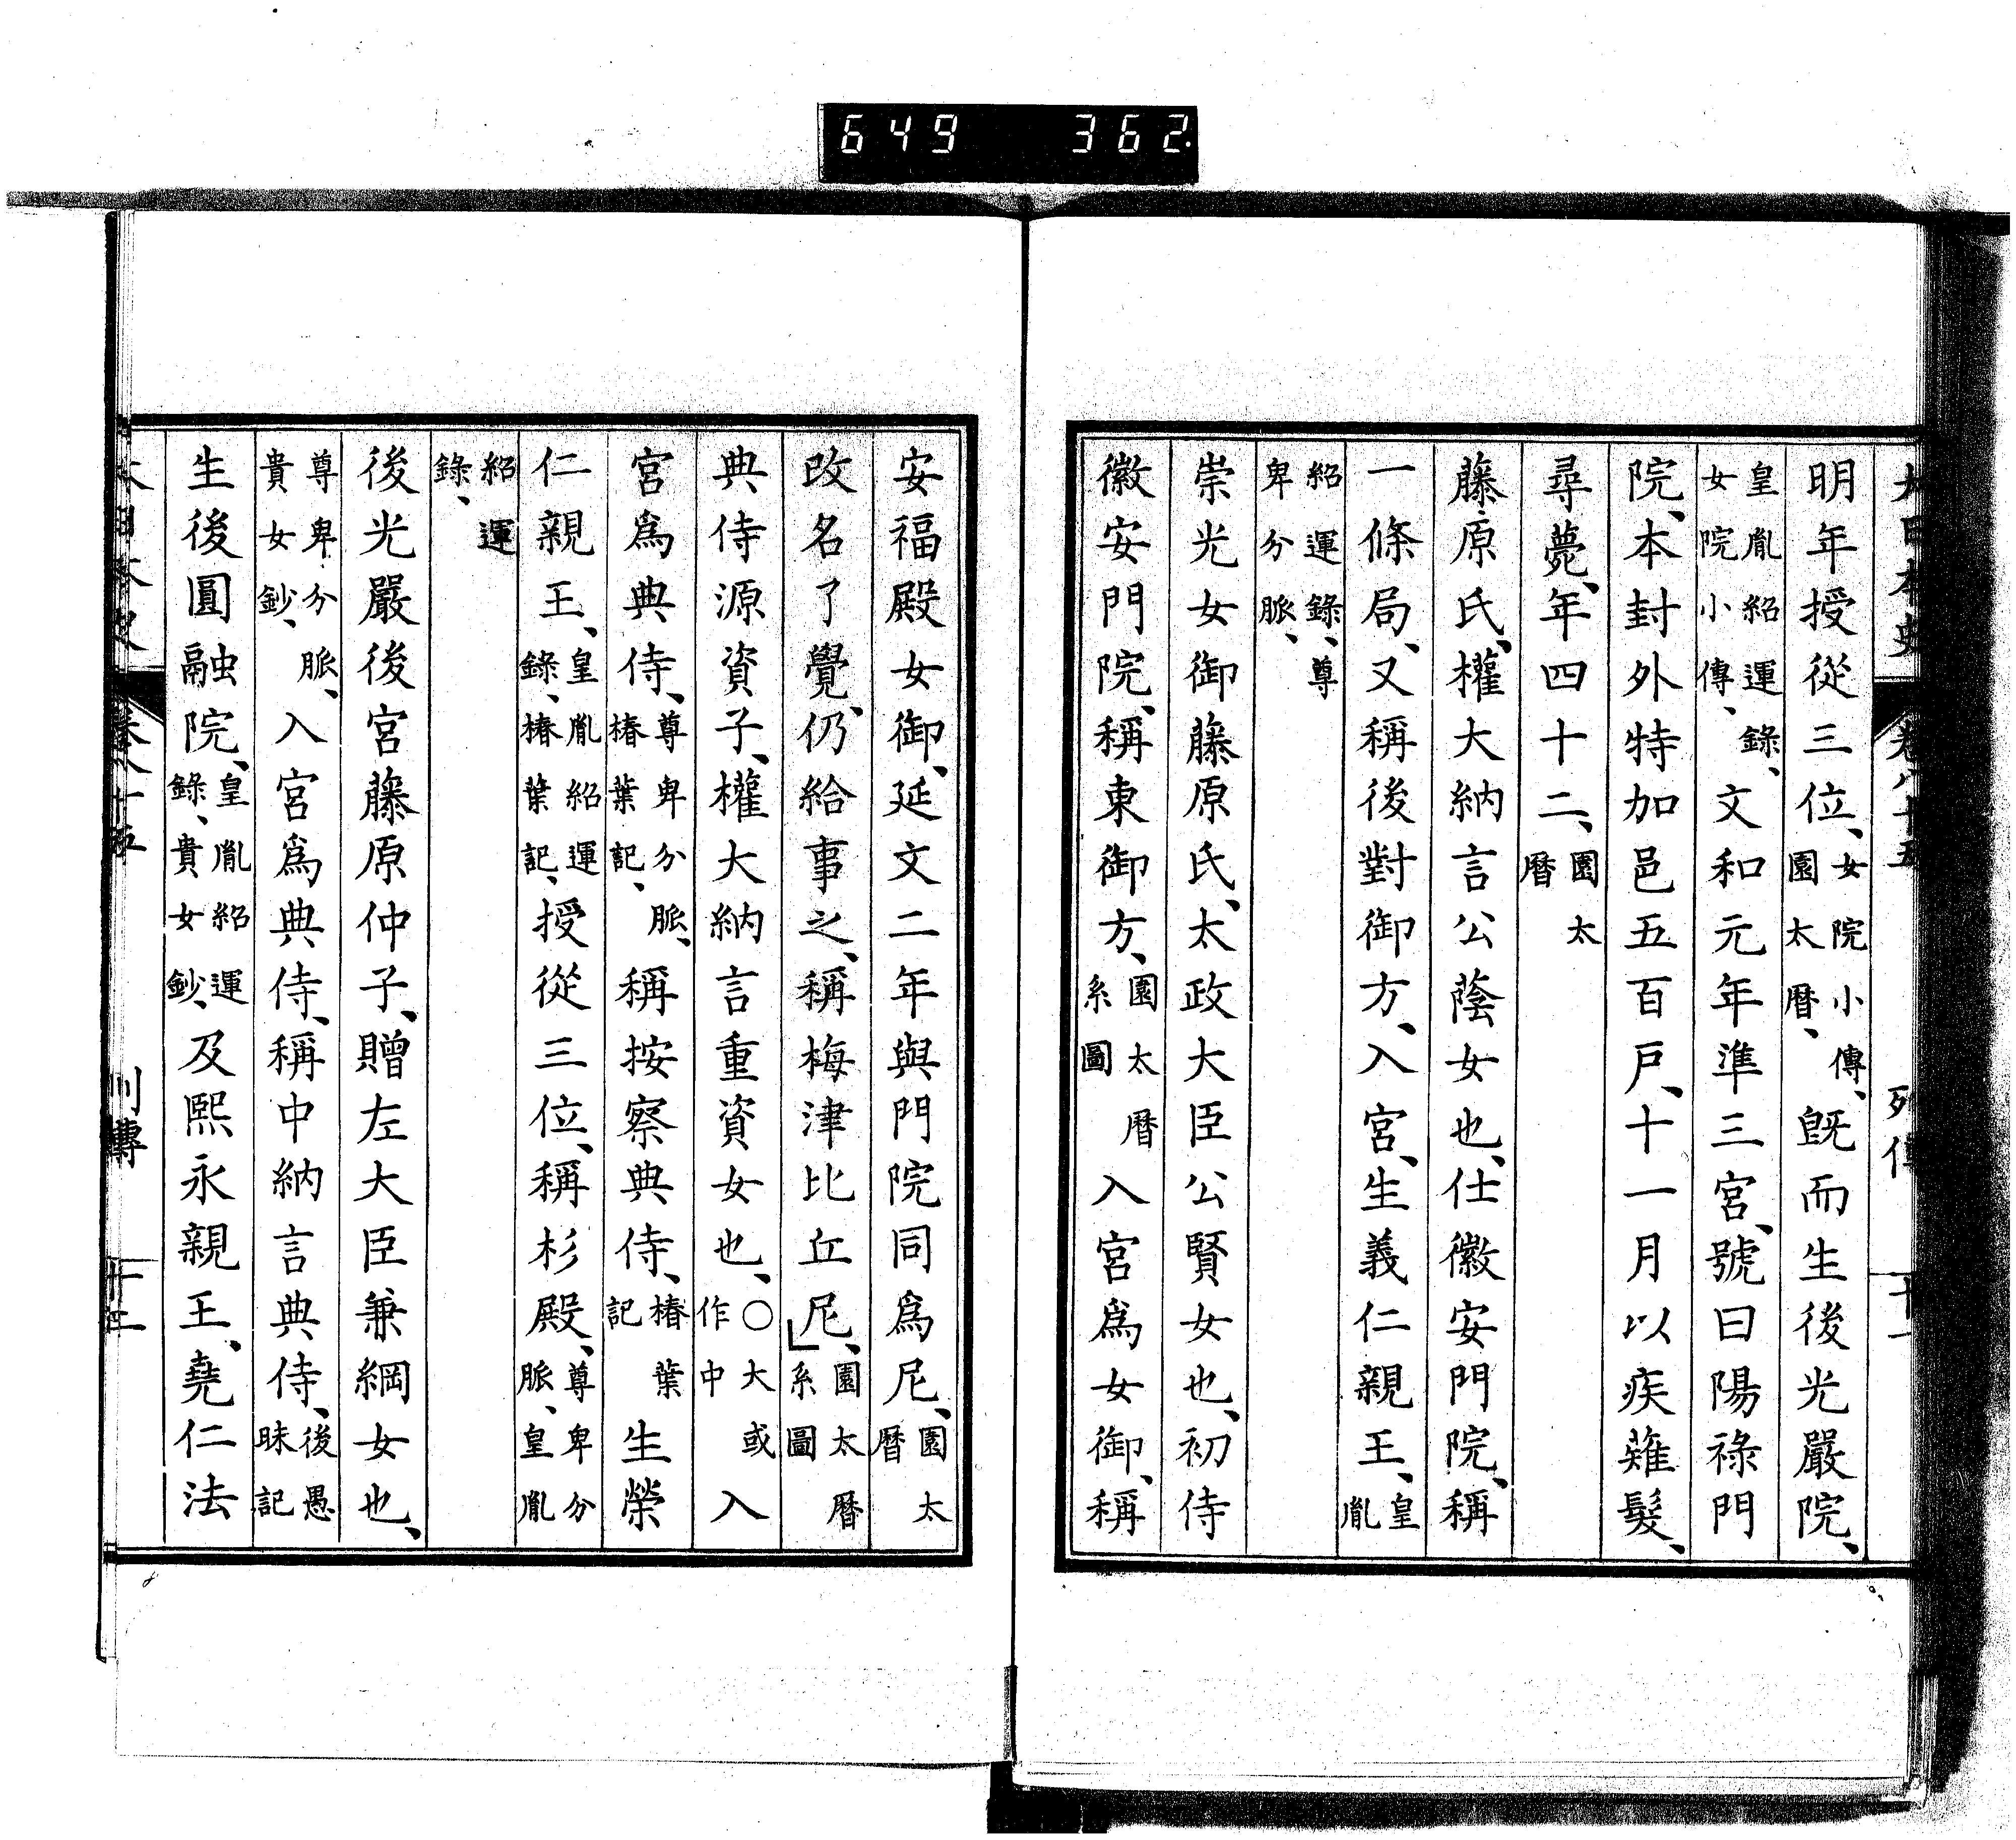 649 362.
明年授從三位、女院小傳、園太曆、旣而生後光嚴院、
皇胤紹運錄、女院小傳、文和元年準三宮、號曰陽祿門
院、本封外特加邑五百戶、十一月以疾薙髮、
尋薨、年四十二、園太曆
藤原氏、權大納言公蔭女也、仕徽安門院、稱
一條局、又稱後對御方、入宮、生義仁親王、皇胤
紹運錄、尊卑分脈、
崇光女御藤原氏、太政大臣公賢女也、初侍
徽安門院、稱東御方、園太曆系圖入宮爲女御、稱
安福殿女御、延文二年與門院同爲尼、園太曆
改名了覺、仍給事之、稱梅津比丘尼、園太曆系圖
典侍源資子、權大納言重資女也、〇大或作中入
宮爲典侍、尊卑分脈、椿葉記、稱按察典侍、椿葉記生榮
仁親王、皇胤紹運錄、椿葉記、授從三位、稱杉殿、尊卑分脈、皇胤
紹運錄、
後光嚴後宮藤原仲子、贈左大臣兼綱女也、
尊卑分脈、貴女鈔、入宮爲典侍、稱中納言典侍、後愚昧記
生後圓融院、皇胤紹運錄、貴女鈔、及熙永親王、堯仁法